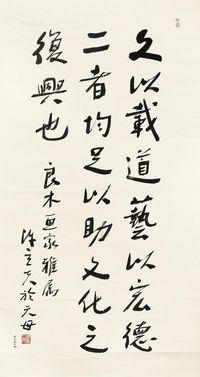 文以載道藝以宏德
二者均足以助文化之
復興也
良木画家雅屬
於天母